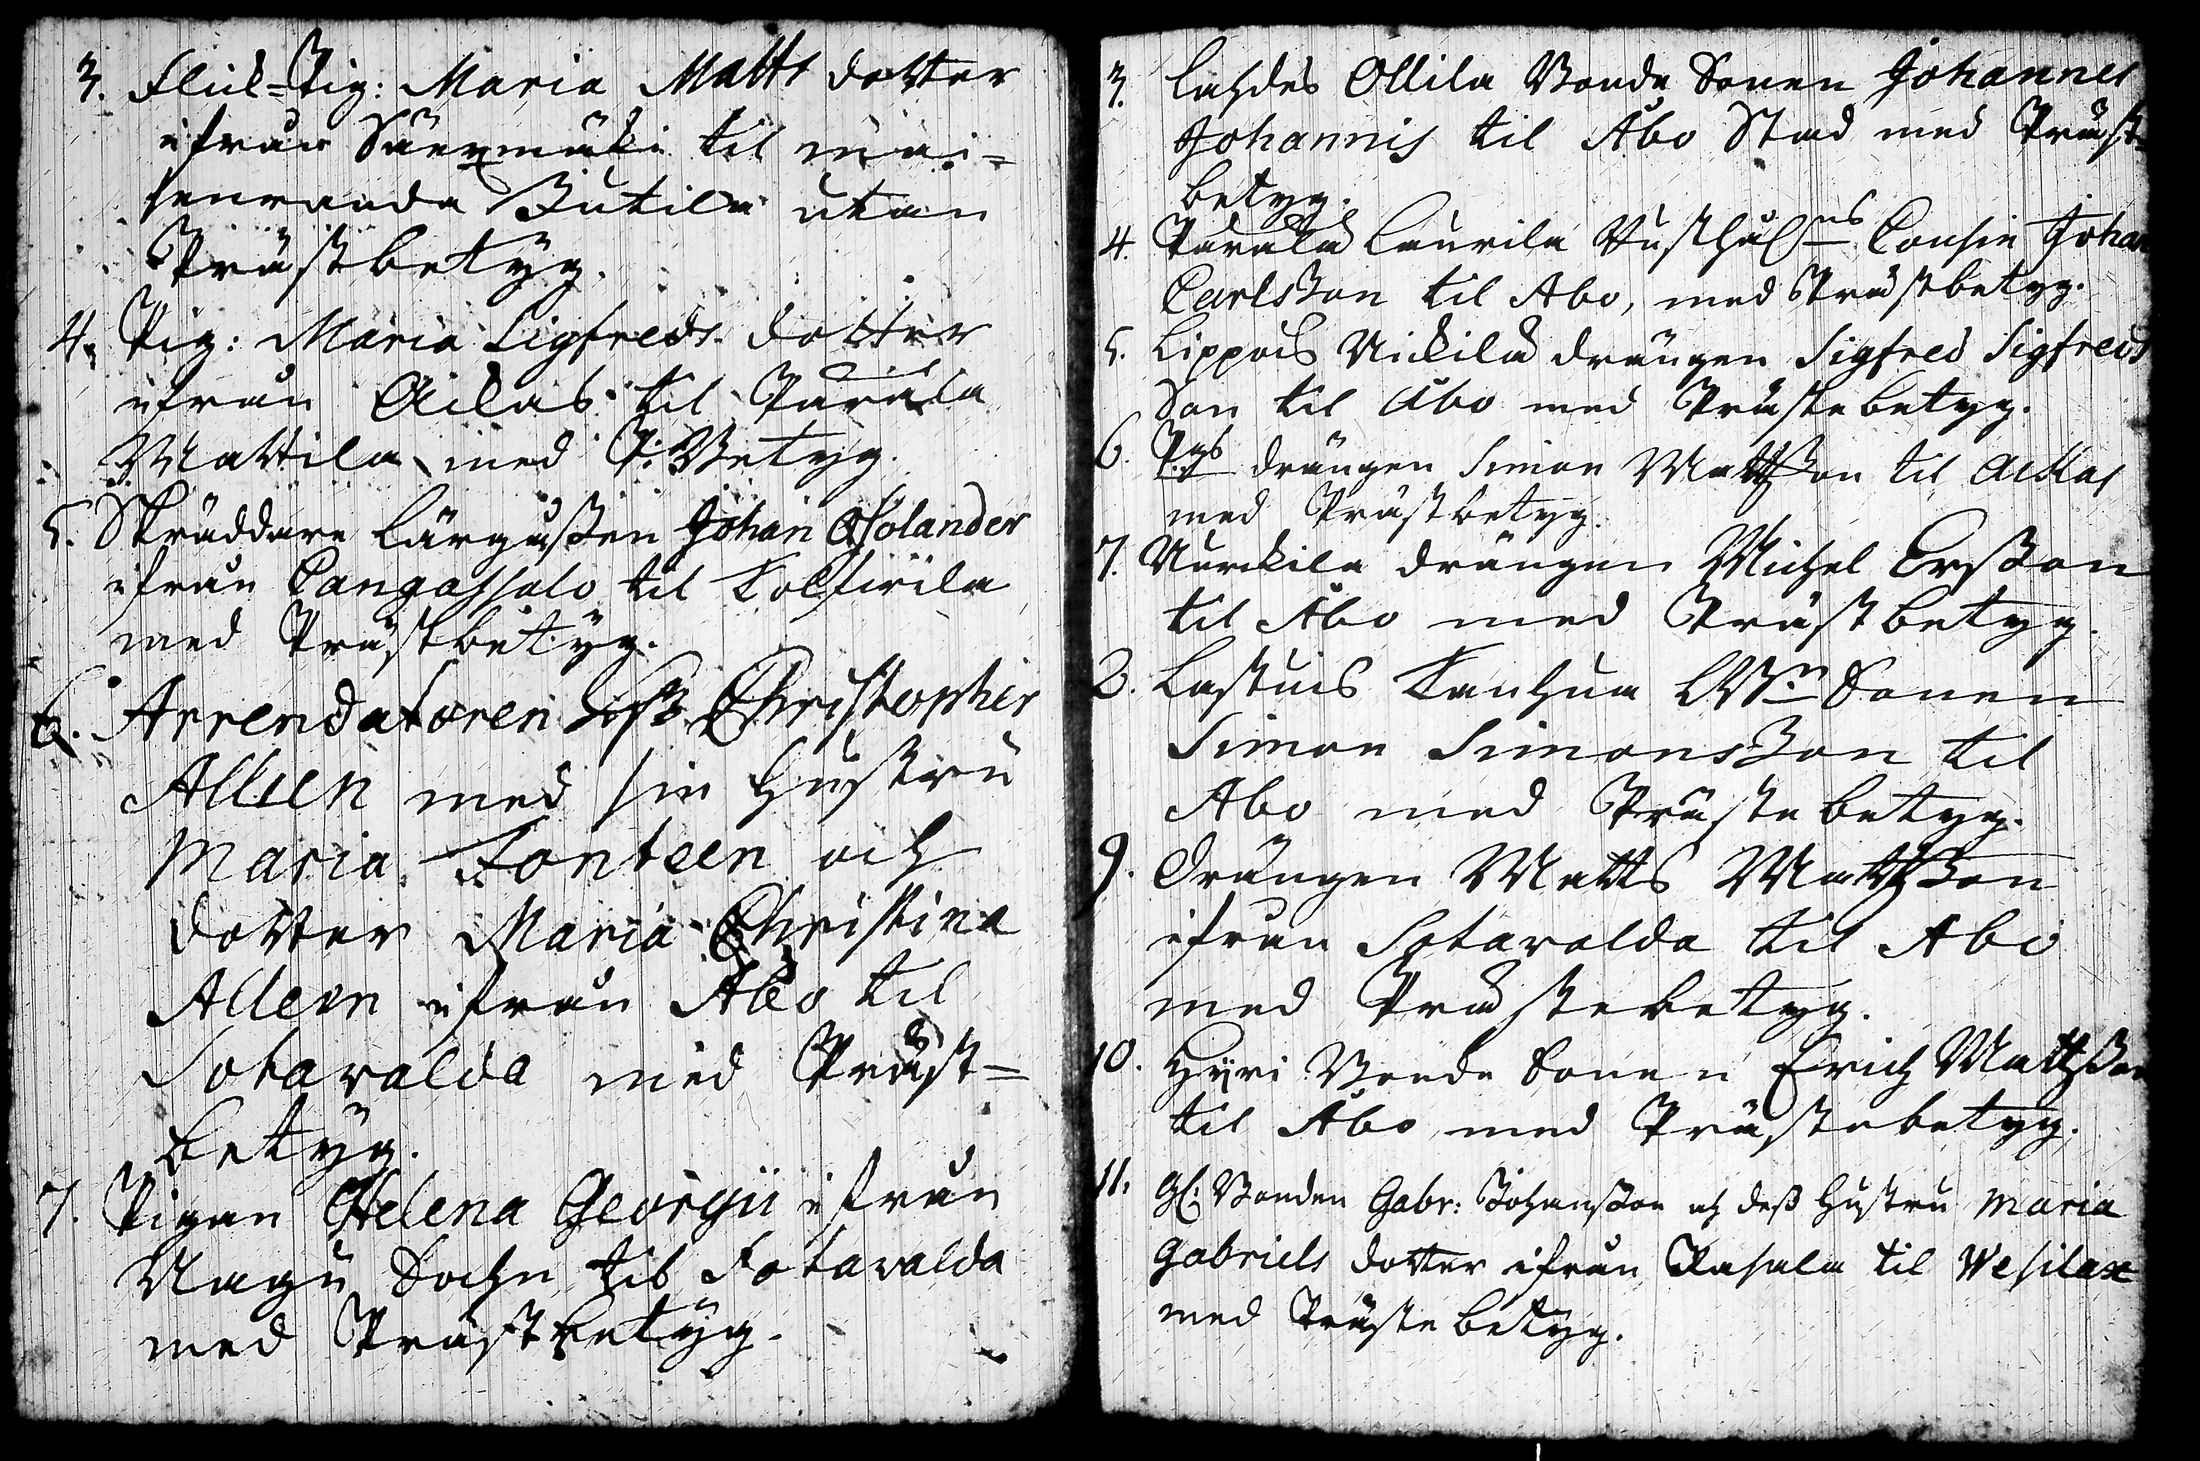 3. Flick-Pig: Maria Matts dotter
ifrån Säexmäki til mai-
senranda Jutila utan
Prästbetyg.
4. Pig: Maria Sigfreds dotter
ifrån Ackas til Parala
Mattila med P: Betyg.
5. Skräddare Lärgåssen Johan Solander
ifrån Cangassalo til
med Prästbetyg.
6. Arrendatoren Christopher
Alleen med sin hustru
Maria Fonteen och
dotter Maria Christina
Alleen ifrån Åbo til
Sotavalda med Präst-
betyg.
7. Pigan Helena Georgii ifrån
Nagu Sochn til Sotavalda
med Prästbetyg.
3. Lahdes Ollila Bonde Sonen Johannes
Johannis til Åbo Stad med Präst-
betyg.
4. Parala Laurila Cousin Johan
Carlsson til Abo, med Prästbetyg.
5. Lippois Nickila drängen Sigfred Sigfreds
Son til Åbo med Prästebetyg.
6. drängen Simon Mattsson til Ackas
med Prästbetyg.
7. Nurckila drängen Michel Ersson
til Åbo med Prästbetyg.
8. Lastuis Kanhua Sonen
Simon Simonsson til
Abo med Prästebetyg.
9. Drängen Matts Mattsson
ifrån Sotavalda til Abo
med Prästebetyg.
10. Hyri Bonde Sonen Erich Mattsson
til Åbo med Prästebetyg.
11. Gl: Bonden Gabr: Johansson och dess Hustru Maria
Gabriels dotter ifrån Rasala til Wesilax
med Prästebetyg.